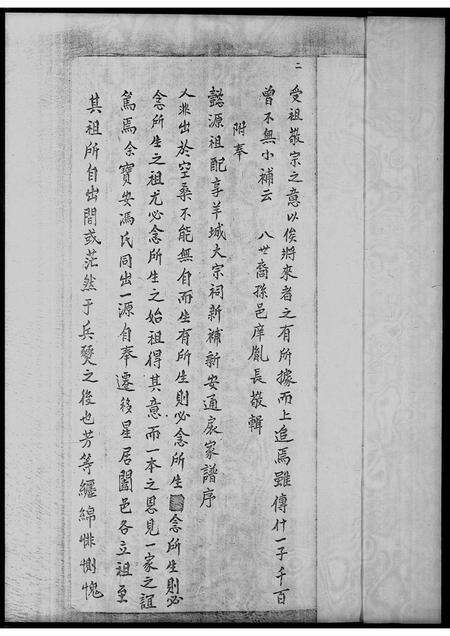 二
受祖敬宗之意以俟將來者之有所據而上追焉雖傳什一于千百
曾不無小補云　八世裔孫邑庠胤長敬輯
附奉
懿源祖配享羊城大宗祠新補新安通裒家譜序
人非出於空桑不能無自而生有所生則必念所生念所生則必
念所生之祖尤必念所生之始祖得其意而一本之恩見一家之誼
篤焉余寶安馮氏同出一源自奉遷移星居闔邑各立祖至
其祖所自出間或茫然于兵燹之後也芳等纏綿悱惻愧